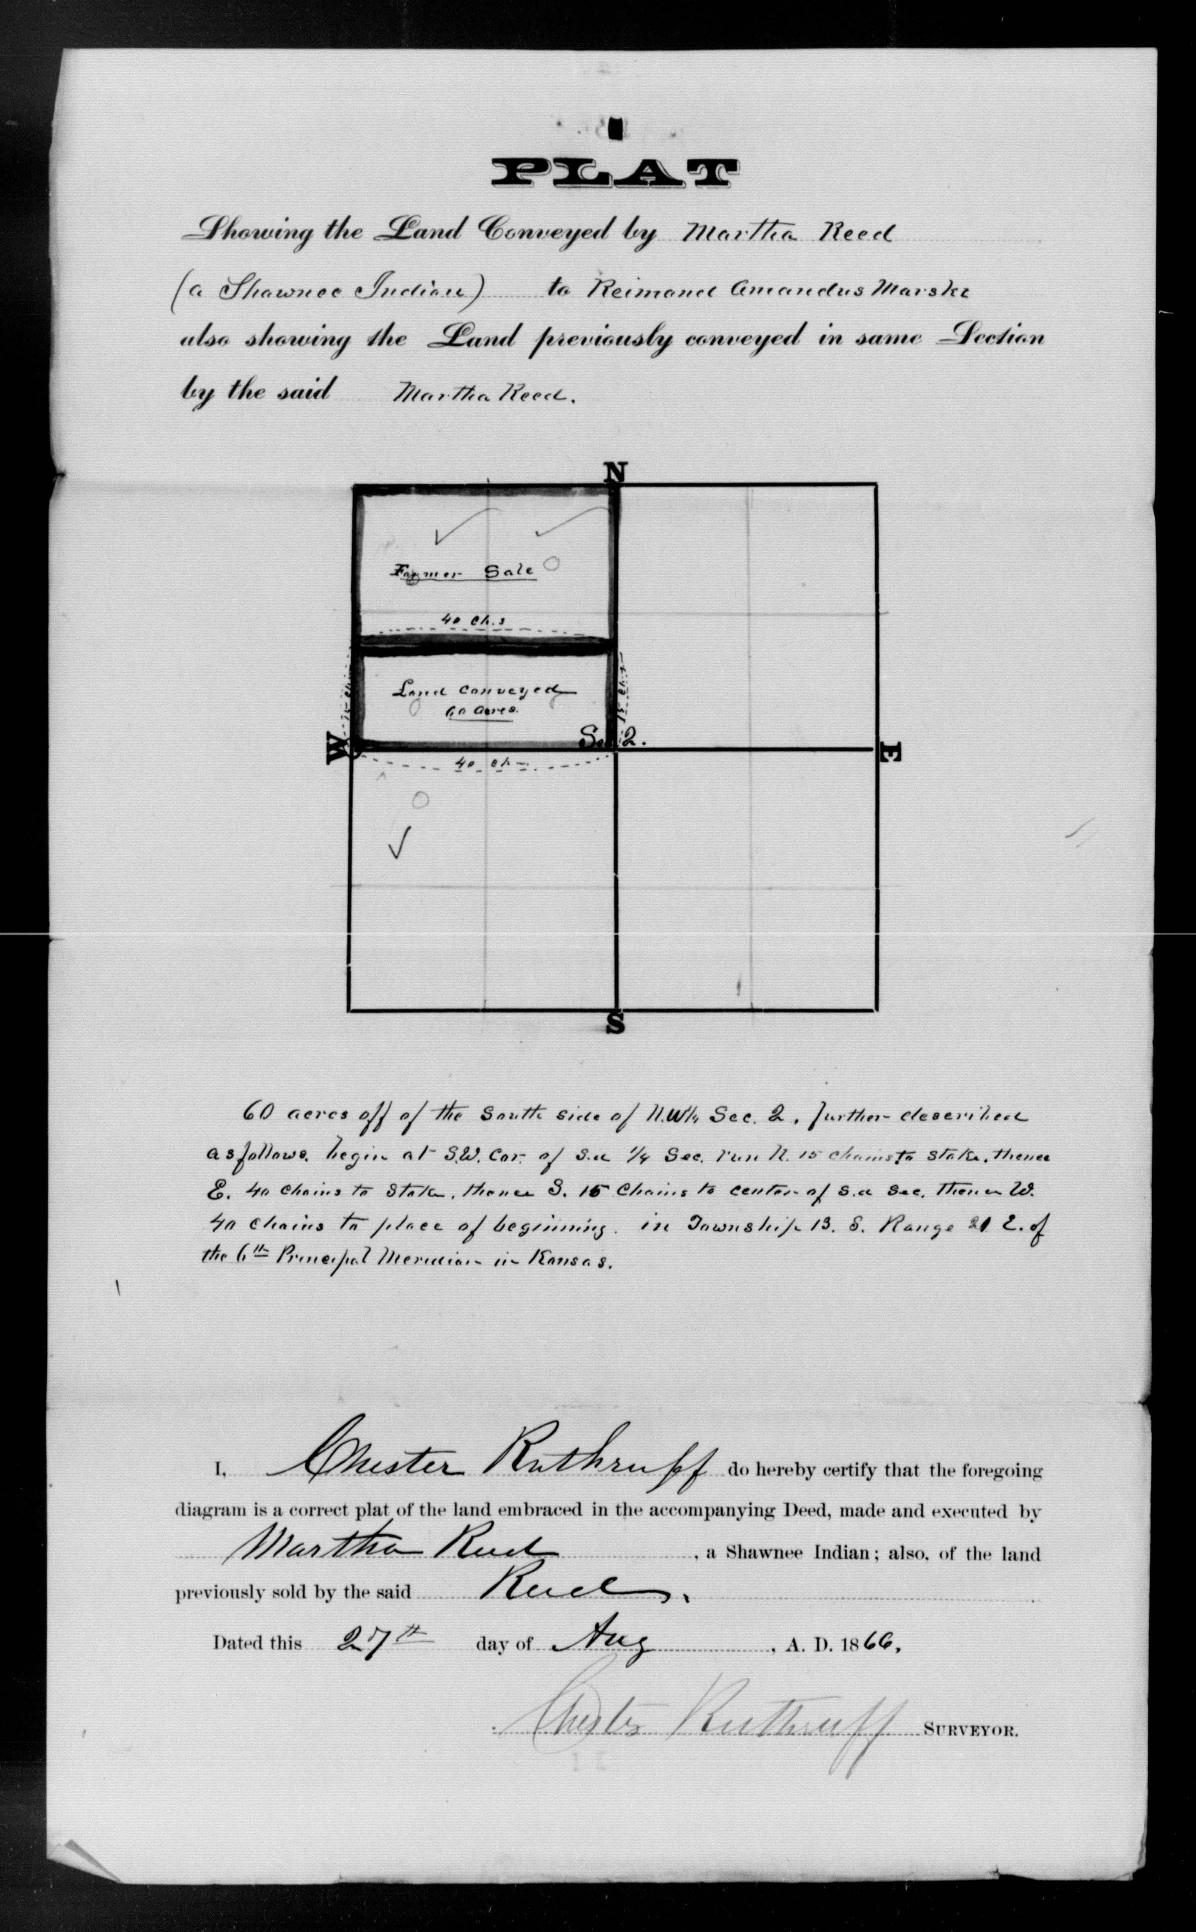 PLAT
Showing the Land Conveyed by Martha Reed
(a Shawnee Indian) to Reimond Amandus Marske
also showing the Land previously conveyed in same Section
by the said Martha Reed.
N
Former Sale
40 Ch.s
Land Conveyed
60 Acres
15 Ch.
15 Ch.
W
Sec. 2.
E
40 Ch
S
60 acres off of the South side of N.W¼ Sec. 2, further described
as follows. begin at S.W. Cor. of S.d ¼ Sec. run N. 15 chains to Stake, thence
E. 40 chains to Stake, thence S. 15 Chains to center of S.d Sec. thence W.
40 chains to place of beginning. in Township 13. S. Range 21 E. of
the 6th Principal Meridian in Kansas.
I, Chester Ruthruff do hereby certify that the foregoing
diagram is a correct plat of the land embraced in the accompanying Deed, made and executed by
Martha Reed, a Shawnee Indian; also, of the land
previously sold by the said Reed.
Dated this 27th day of Aug, A. D. 1866.
Chester Ruthruff SURVEYOR.